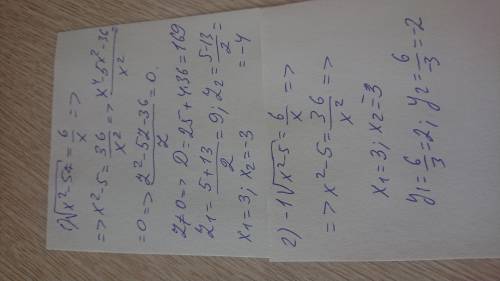 1) √x²-5x = 6/x =>
=> x²-5 = 36/x² => x⁴-5x²-36/x²
=0 => z²-5z-36/z =0.
z≠0 => D=25+4·36=169
z₁ = 5+13/2 = 9; z₂ = 5-13/2 =
= -4
x₁=3; x₂=-3
2) -1√x²5 = 6/x =>
=> x²-5 = 36/x² =>
x₁=3; x₂=-3
y₁ = 6/3 = 2; y₂ = 6/-3 = -2